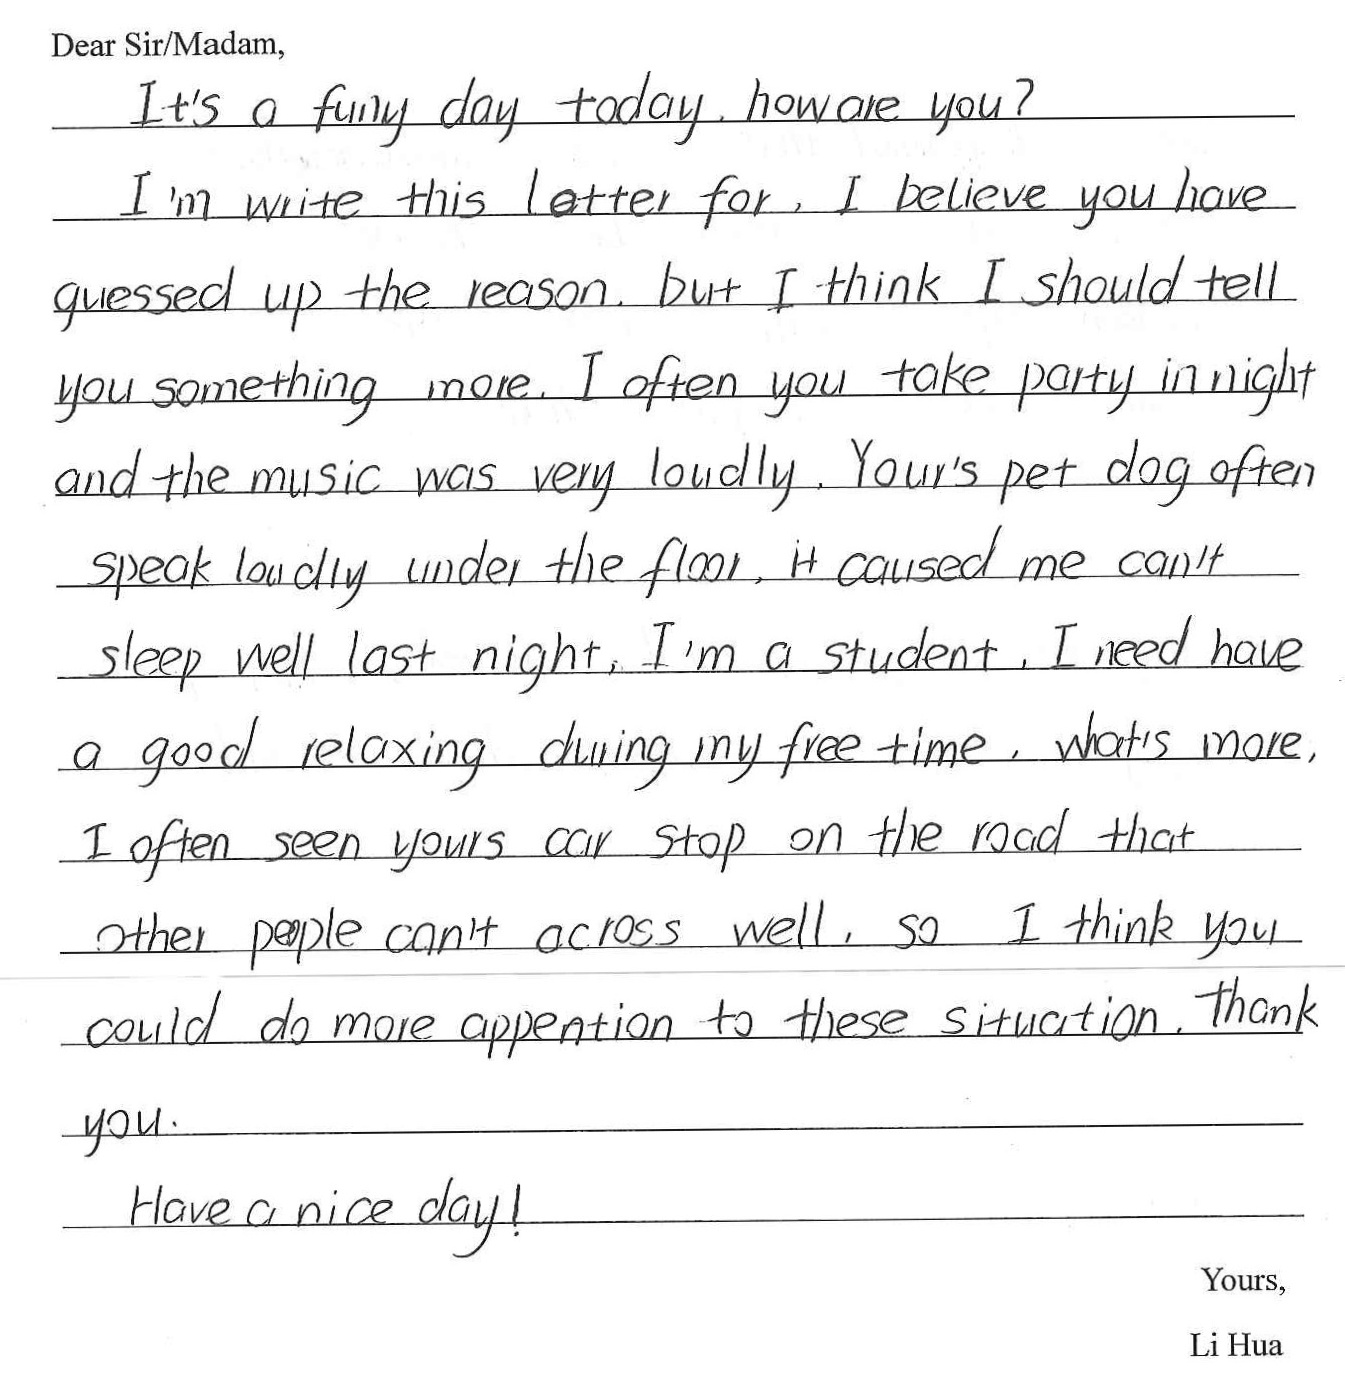 Dear Sir/Madam,
It's a funy day today. how are you?
I'm write this letter for, I believe you have
guessed up the reason. but I think I should tell
you something more. I often you take party in night
and the music was very loudly. Your's pet dog often
speak loudly under the floor, it caused me can't
sleep well last night, I'm a student, I need have
a good relaxing during my free time, what's more,
I often seen yours car stop on the road that
other people can't across well, so I think you
could do more appention to these situation. Thank
you.
Have a nice day!
Yours,
Li Hua